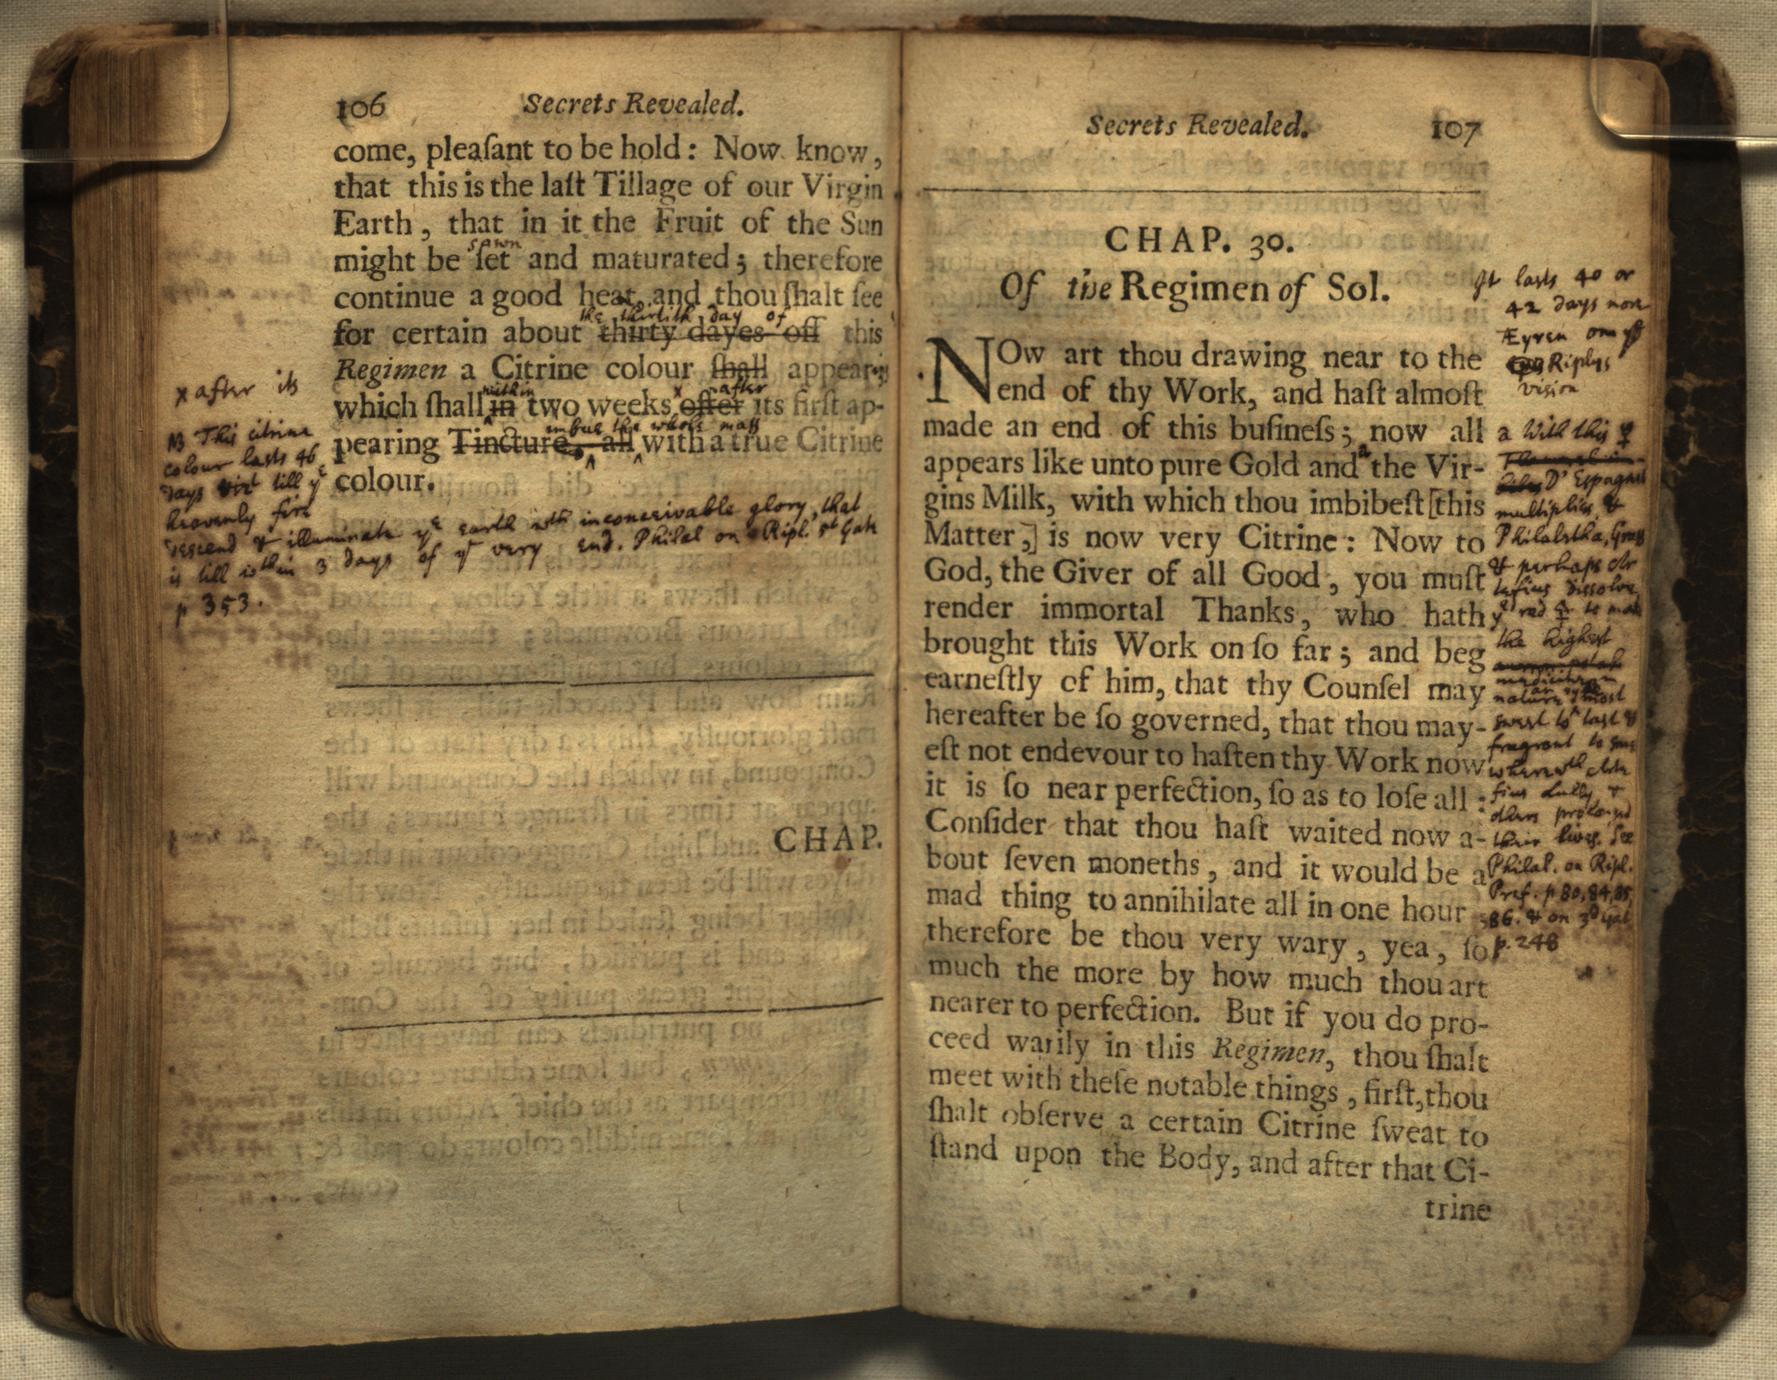 106 Secrets Revealed.
come, pleaſant to be hold: Now know,
that this is the laſt Tillage of our Virgin
Earth, that in it the Fruit of the Sun
spawn
might be ſet and maturated; therefore
continue a good heat, and thou ſhalt ſee
the thirtith day of
for certain about thirty dayes off this
Regimen a Citrine colour ſhall appear;
within x after
which ſhall in two weeks ofter its firſt ap-
imbue the whole mass
pearing Tincture, all with a true Citrine
colour.
x after its
NB This citrine
colour lasts 46
days till yᵉ
heavenly fire
descend & illuminate yᵉ earth wᵗʰ inconceivable glory, that
is till within 3 days of yᵉ very end. Philal on Ripl. Gate
p 353.
CHAP.
Secrets Revealed. 107
CHAP. 30.
Of the Regimen of Sol.
NOw art thou drawing near to the
end of thy Work, and haſt almoſt
made an end of this buſineſs; now all
appears like unto pure Gold and a the Vir-
gins Milk, with which thou imbibeſt [this
Matter,] is now very Citrine: Now to
God, the Giver of all Good, you muſt
render immortal Thanks, who hath
brought this Work on ſo far; and beg
earneſtly of him, that thy Counſel may
hereafter be ſo governed, that thou may-
eſt not endevour to haſten thy Work now
it is ſo near perfection, ſo as to loſe all:
Conſider that thou haſt waited now a-
bout ſeven moneths, and it would be a
mad thing to annihilate all in one hour;
therefore be thou very wary, yea, ſo
much the more by how much thou art
nearer to perfection. But if you do pro-
ceed warily in this Regimen, thou ſhalt
meet with theſe notable things, firſt, thou
ſhalt obſerve a certain Citrine ſweat to
ſtand upon the Body, and after that Ci-
trine
It lasts 40 or
42 days
Æyren on yᵉ
Riplys
vision
a With this ☿
D'Espagnet
multiplies, &
Philaletha,
& perhaps
dissolve
yᵉ red to make
the highest
medicine in
nature most
sweet to last &
fragrant to
wherewᵗʰ
Lully &
others prolonged
their lives. See
Philal. on Ripl.
Pref. p 80, 84, 85,
86. & on 3ᵈ Gate
p. 248